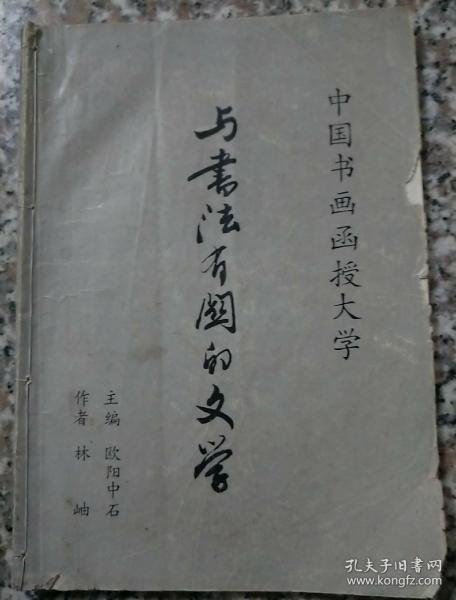 中国书画函授大学
与書法有関的文学
主编 欧阳中石
作者 林岫
孔夫子旧書网
www.kongfz.com